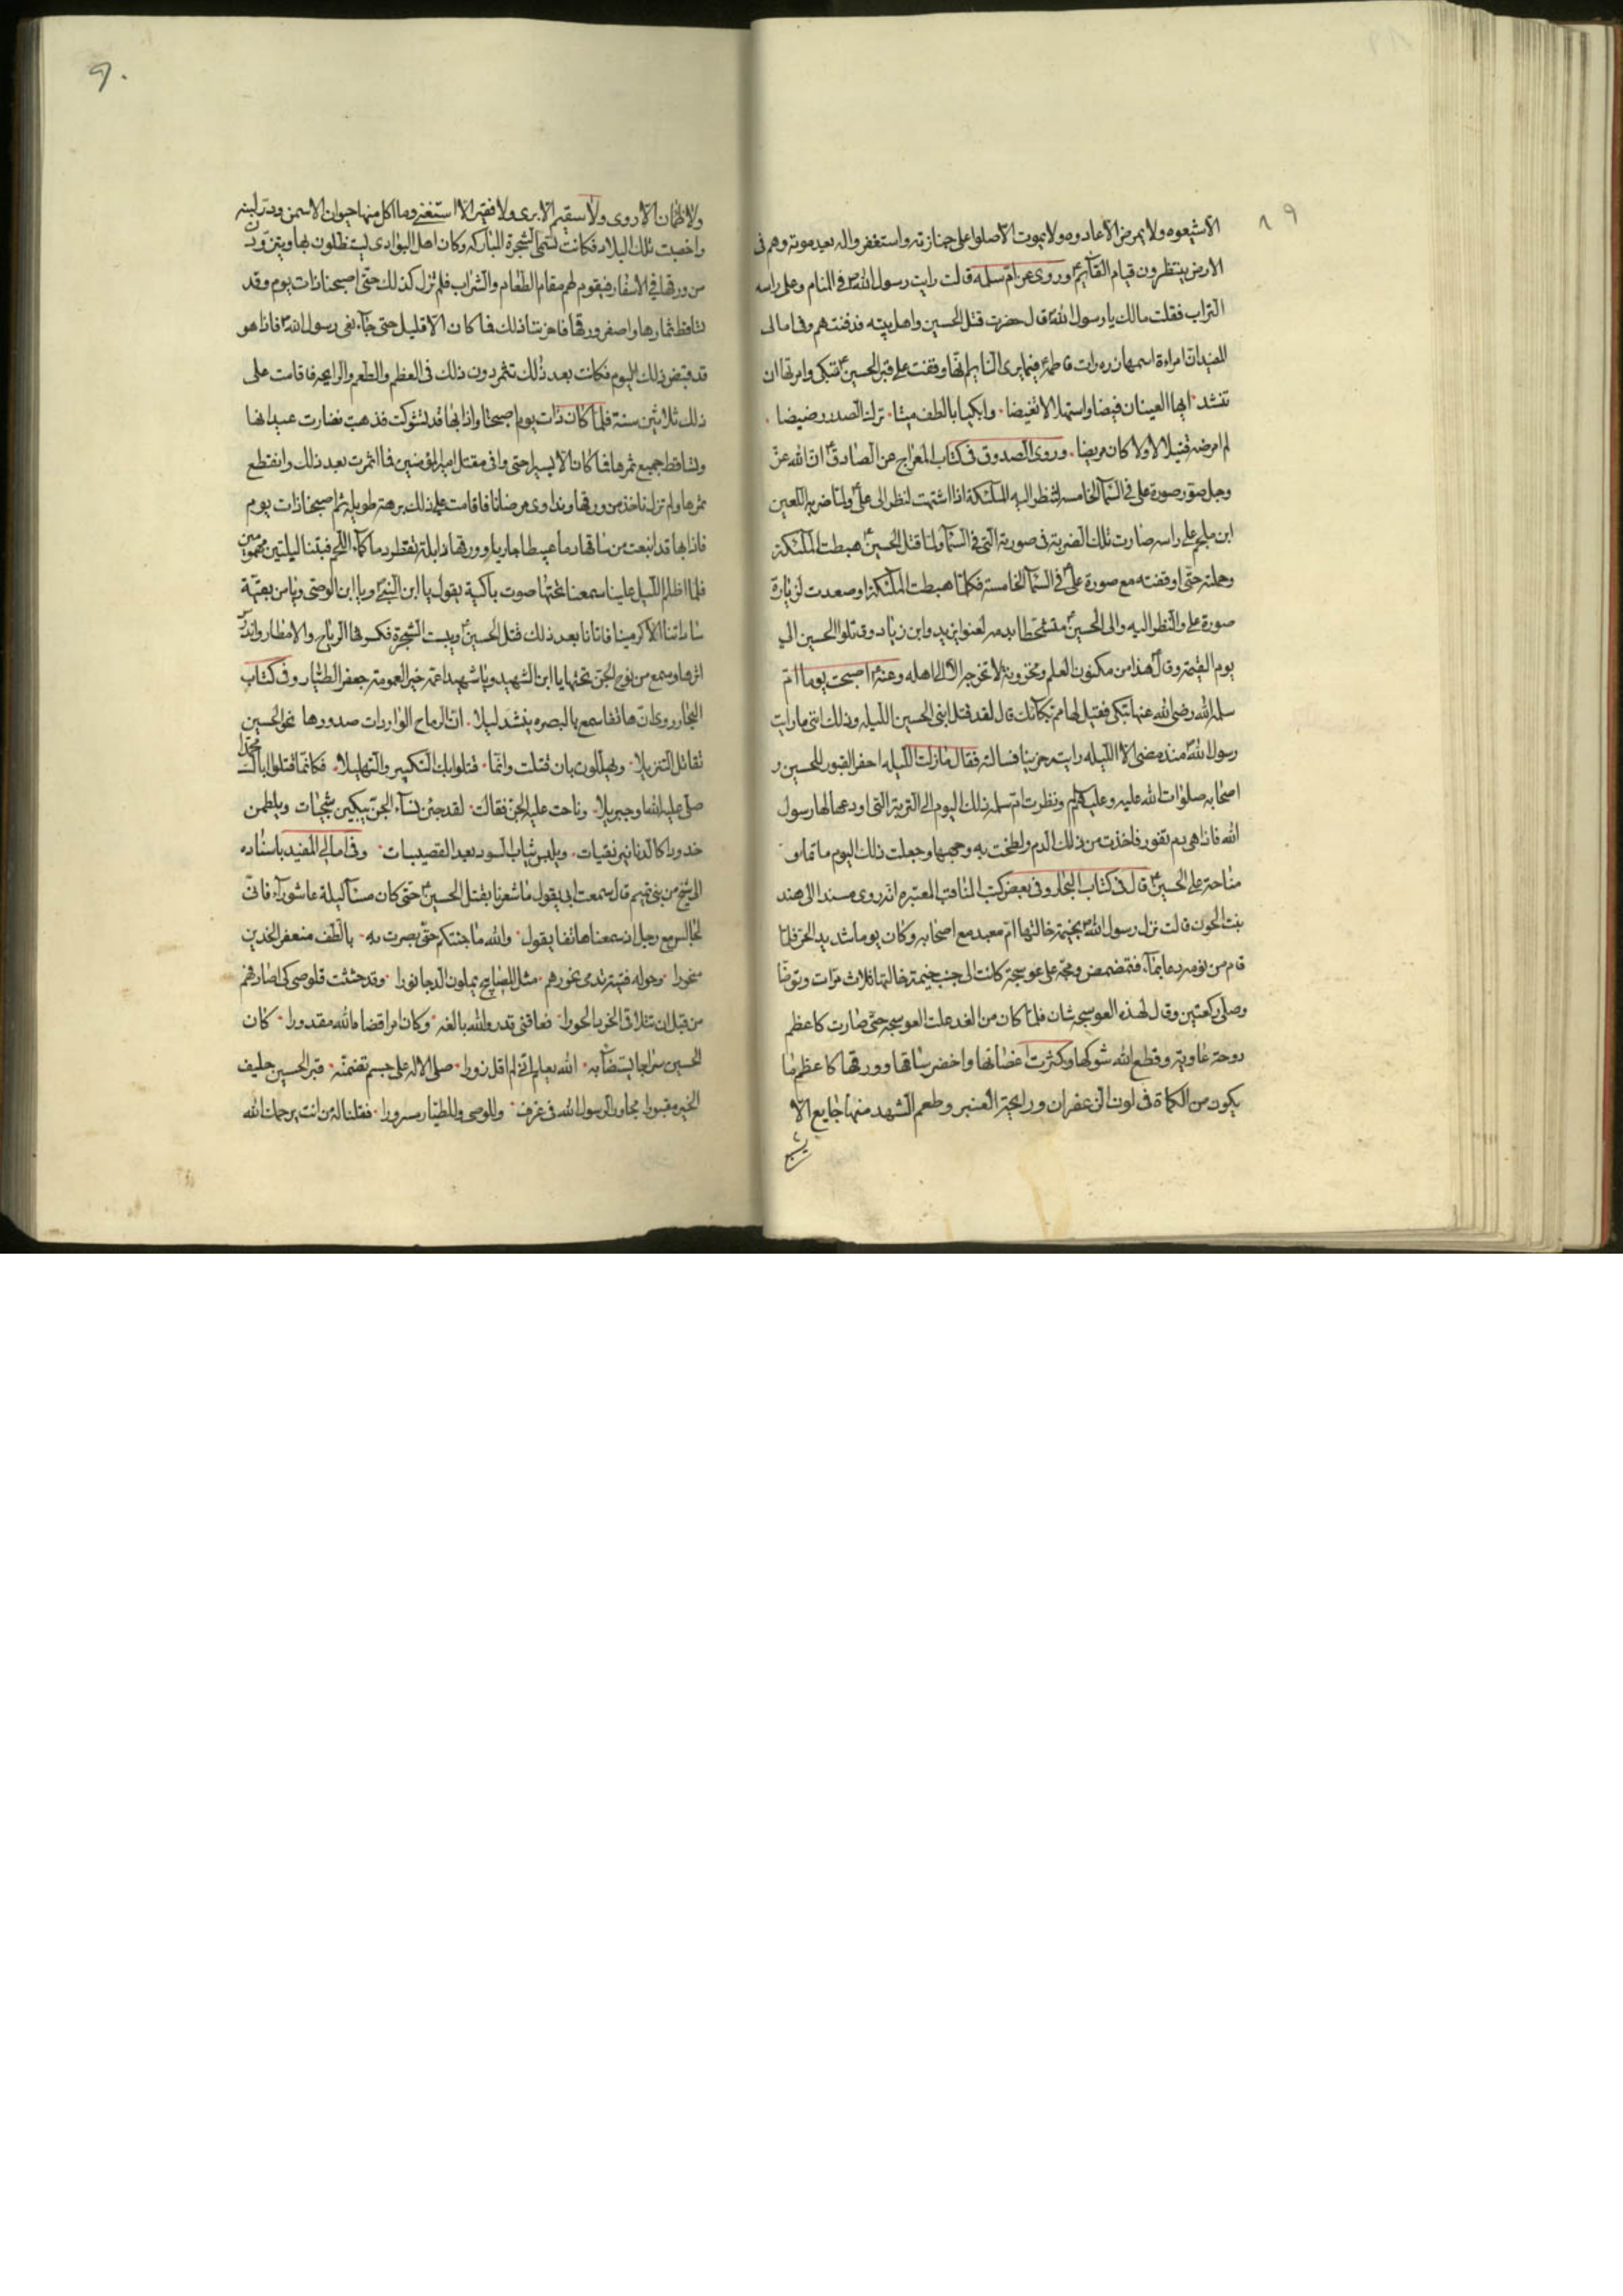 ٨٩
الا شيعوه ولا يمرض الا عادوه ولا يموت الا صلوا على جنازته واستغفروا له بعد موته وهم في
الارض ينتظرون قيام القآئم ع وروى عن ام سلمه قالت رايت رسول الله ص في المنام وعلى راسه
التراب فقلت مالك يا رسول الله ص قال حضرت قتل الحسين واهل بيته فدفنتهم وفي امالى
المفيد ان امراءة اسمها ذره رات فاطمة ع فيما يرى النايم انها وقفت على قبر الحسين ع تبكى وامرتها ان
تنشد ايها العينان فيضا واستهلا لا تغيضا وابكيا بالطف ميتا ترك الصدر رضيضا
لم امرضه قتيلا لا ولا كان مريضا وروى الصدوق في كتاب المعراج عن الصادق ع ان الله عز
وجل صور صورة على في السمآ الخامسه لتنظر اليه الملئكة اذا اشتهت لنظر الى على ع ولما ضربه اللعين
ابن ملجم على راسه صارت تلك الضربة في صورته التى في السمآ ولما قتل الحسين ع هبطت الملئكة
وحملته حتى اوقفته مع صورة على ع في السمآ الخامسة فكلما هبطت الملئكة او صعدت لزيارة
صورة على والنظر اليه والى الحسين ع متشحطا بدمه لعنوا يزيد وابن زياد وقاتلوا الحسين الى
يوم القيمة وقال هذا من مكنون العلم ومخزونه لا تخرجه الا الى اهله وعنه ع اصبحت يوما ام
سلمه رضى الله عنها تبكى فقيل لها مم بكآئك قال لقد قتل ابنى الحسين الليله وذلك اننى ما رايت
رسول الله ص منذ مضى الا الليله رايته حزينا فسالته فقال ما زلت الليله احفر القبور للحسين و
اصحابه صلوات الله عليه وعليهم ونظرت ام سلمه ذلك اليوم الى التربة التى اودعها لها رسول
الله فاذا هى دم تفور فاخذت من ذلك الدم ولطخت به وجهها وجعلت ذلك اليوم ماتما و
مناحة على الحسين ع قال في كتاب البحار وفي بعض كتب المناقب المعتبره انه روى مسندا الى هند
بنت الجون قالت نزل رسول الله ص بخيمة خالتها ام معبد مع اصحابه وكان يوما شديد الحر فلما
قام من نومه دعا بمآء فتمضمض ومجه على عوسجة كانت الى جنب خيمة خالتها ثلاث مرات وتوضا
وصلى ركعتين وقال لهذه العوسجه شان فلما كان من الغد علت العوسجه حتى صارت كاعظم
دوحة عاوية وقطع الله شوكها وكثرت اغصانها واخضر ساقها وورقها كاعظم ما
يكون من الكماة في لون الزعفران ورايحة العنبر وطعم الشهد منها جايع الا
٩٠
ولا ظمان الا روى ولا سقيم الا برى ولا فقير الا استغنى وما اكل منها حيوان الا سمن ودر لبنه
واخصبت تلك البلاد فكانت تسمى الشجرة المباركه وكان اهل البوادى يستظلون بها ويتزودون
من ورقها في الاسفار فيقوم لهم مقام الطعام والشراب فلم تزل كذلك حتى اصبحنا ذات يوم وقد
تساقط ثمارها واصفر ورقها فاحزننا ذلك فما كان الا قليل حتى جآء نعى رسول الله ص فاذا هو
قد قبض ذلك اليوم فكانت بعد ذلك تثمر دون ذلك في العظم والطعم والرايحه فاقامت على
ذلك ثلاثين سنة فلما كان ذات يوم اصبحنا واذا بها قد تشوكت فذهبت نضارت عيدانها
وتساقط جميع ثمرها فما كان الا يسيرا حتى وافى مقتل امير المؤمنين فما اثمرت بعد ذلك وانقطع
ثمرها ولم نزل ناخذ من ورقها ونداوى مرضانا فاقامت على ذلك برهة طويلة ثم اصبحنا ذات يوم
فاذا بها قد انبعت من ساقها دما عبيطا جاريا وورقها ذابلة تقطر دما كمآء اللحم فبتنا ليلتين مهمومين
فلما اظلم الليل علينا سمعنا تحتها صوت باكية يقول يا ابن النبى ويا ابن الوصى ويا من بقية
ساداتنا الاكرمينا فاتانا بعد ذلك قتل الحسين ع ويبست الشجرة فكسرها الرياح والامطار واندرس
اثرها وسمع من نوح الجن تحتها يا ابن الشهيد ويا شهيدا عمه خير العمومة جعفر الطيار وفي كتاب
البحار روى ان هاتفا سمع بالبصره ينشد ليلا ان الرماح الواردات صدورها نحو الحسين
تقاتل التنزيلا ويهللون بان قتلت وانما قتلوا بك التكبير والتهليلا فكانما قتلوا اباك محمدا
صلى عليه الله او جبريلا وناحت عليه الجن فقالت لقد جئن نسآء الجن يبكين شجيات ويلطمن
خدودا كالدنانير نقيات ويلبس ثياب السود بعد القصيبات وفي امالى المفيد باسناده
الى شيخ من بنى تميم قال سمعت ابى يقول ما شعرنا بقتل الحسين ع حتى كان مسآ ليلة عاشورآء فانى
لجالس مع رجل اذ سمعنا هاتفا يقول والله ما جئتكم حتى بصرت به بالطف منعفر الخدين
منحورا وحوله فتية تدمى نحورهم مثل المصابيح يملون الدجا نورا وقد حثثت قلوصى كى اصادفهم
من قبل ان تتلاقى الخرد الحورا فعاقنى قدر والله بالغه وكان امرا قضاه الله مقدورا كان
الحسين سراجا يستضآء به الله يعلم انى لم اقل زورا صلى الاله على جسم تضمنه قبر الحسين حليف
الخير مقبورا مجاورا لرسول الله في غرف وللوصى وللطيار مسرورا فقلنا له من انت يرحمك الله